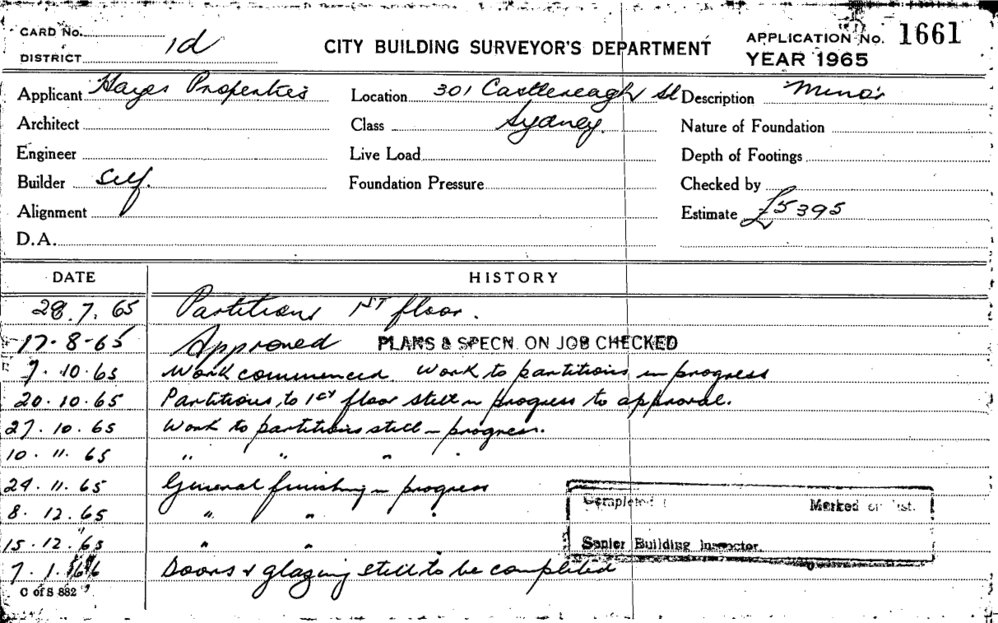 CARD No.
DISTRICT 1d
CITY BUILDING SURVEYOR'S DEPARTMENT
APPLICATION No. 1661
YEAR 1965
Applicant Hayes Properties
Location 301 Castlereagh St
Sydney.
Description Minor
Architect
Class
Nature of Foundation
Engineer
Live Load
Depth of Footings
Builder self.
Foundation Pressure
Checked by
Alignment
Estimate £5395
D.A.
DATE HISTORY
28.7.65 Partitions 1ST floor.
17-8-65 Approved PLANS & SPECN. ON JOB CHECKED
7.10.65 Work commenced. Work to partitions in progress
20.10.65 Partitions to 1st floor still in progress to approval.
27.10.65 Work to partitions still in progress.
10.11.65 " " " "
24.11.65 General finishing in progress
8.12.65 " " "
15.12.65 " " "
7.1.66 Doors & glazing still to be completed
Completed Marked on list.
Senior Building Inspector.
C of S 882